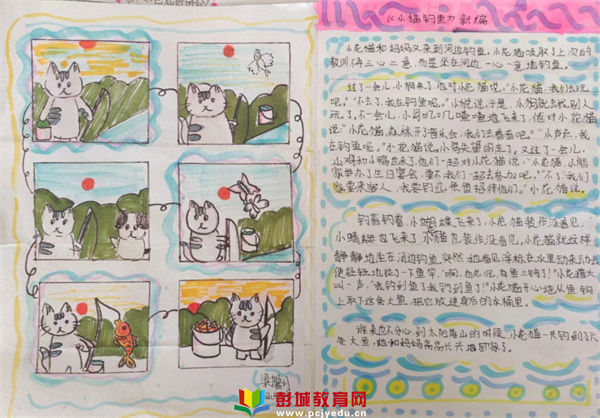 《小猫钓鱼》新编
小花猫和妈妈又来到河边钓鱼。小花猫吸取了上次的
教训不再三心二意,而是坐在河边一心一意地钓鱼。
过了一会儿,小狗来了,他对小花猫说:“小花猫,我们去玩
吧。”“不去了,我在钓鱼呢。”小花猫说。于是,小狗就去找别人
玩了。不一会儿,小鸟叽叽喳喳地飞来了,他对小花猫
说:“小花猫,森林开音乐会,我们去看看吧。”“小声点,我
在钓鱼呢。”小花猫说。小鸟失望的走了。又过了一会儿,
小鸡和小鸭也来了,他们一起对小花猫说:“小花猫,小熊
家举办了生日宴会,要不我们一起去参加吧。”“不了,我们
家要来客人,我要钓几条鱼招待他们。”小花猫说。
钓着钓着,小蝴蝶飞来了,小花猫装作没看见,
小蜻蜓也飞来了,小猫也装作没看见,小花猫就这样
静静地坐在河边钓鱼。突然,她看见浮标在水里动来动去
便轻轻地拉了一下鱼竿,“啊,太好了吧,有鱼上钩了!”小花猫大
叫一声:“我钓到鱼了我钓到鱼了!”小花猫开心地从鱼钩
上取下这条大鱼,把它放进身后的水桶里。
谁来也不分心,到太阳落山的时候,小花猫一共钓到了六
条大鱼,她和妈妈高高兴兴地回家了。
彭城教育网
www.pcjyedu.cn